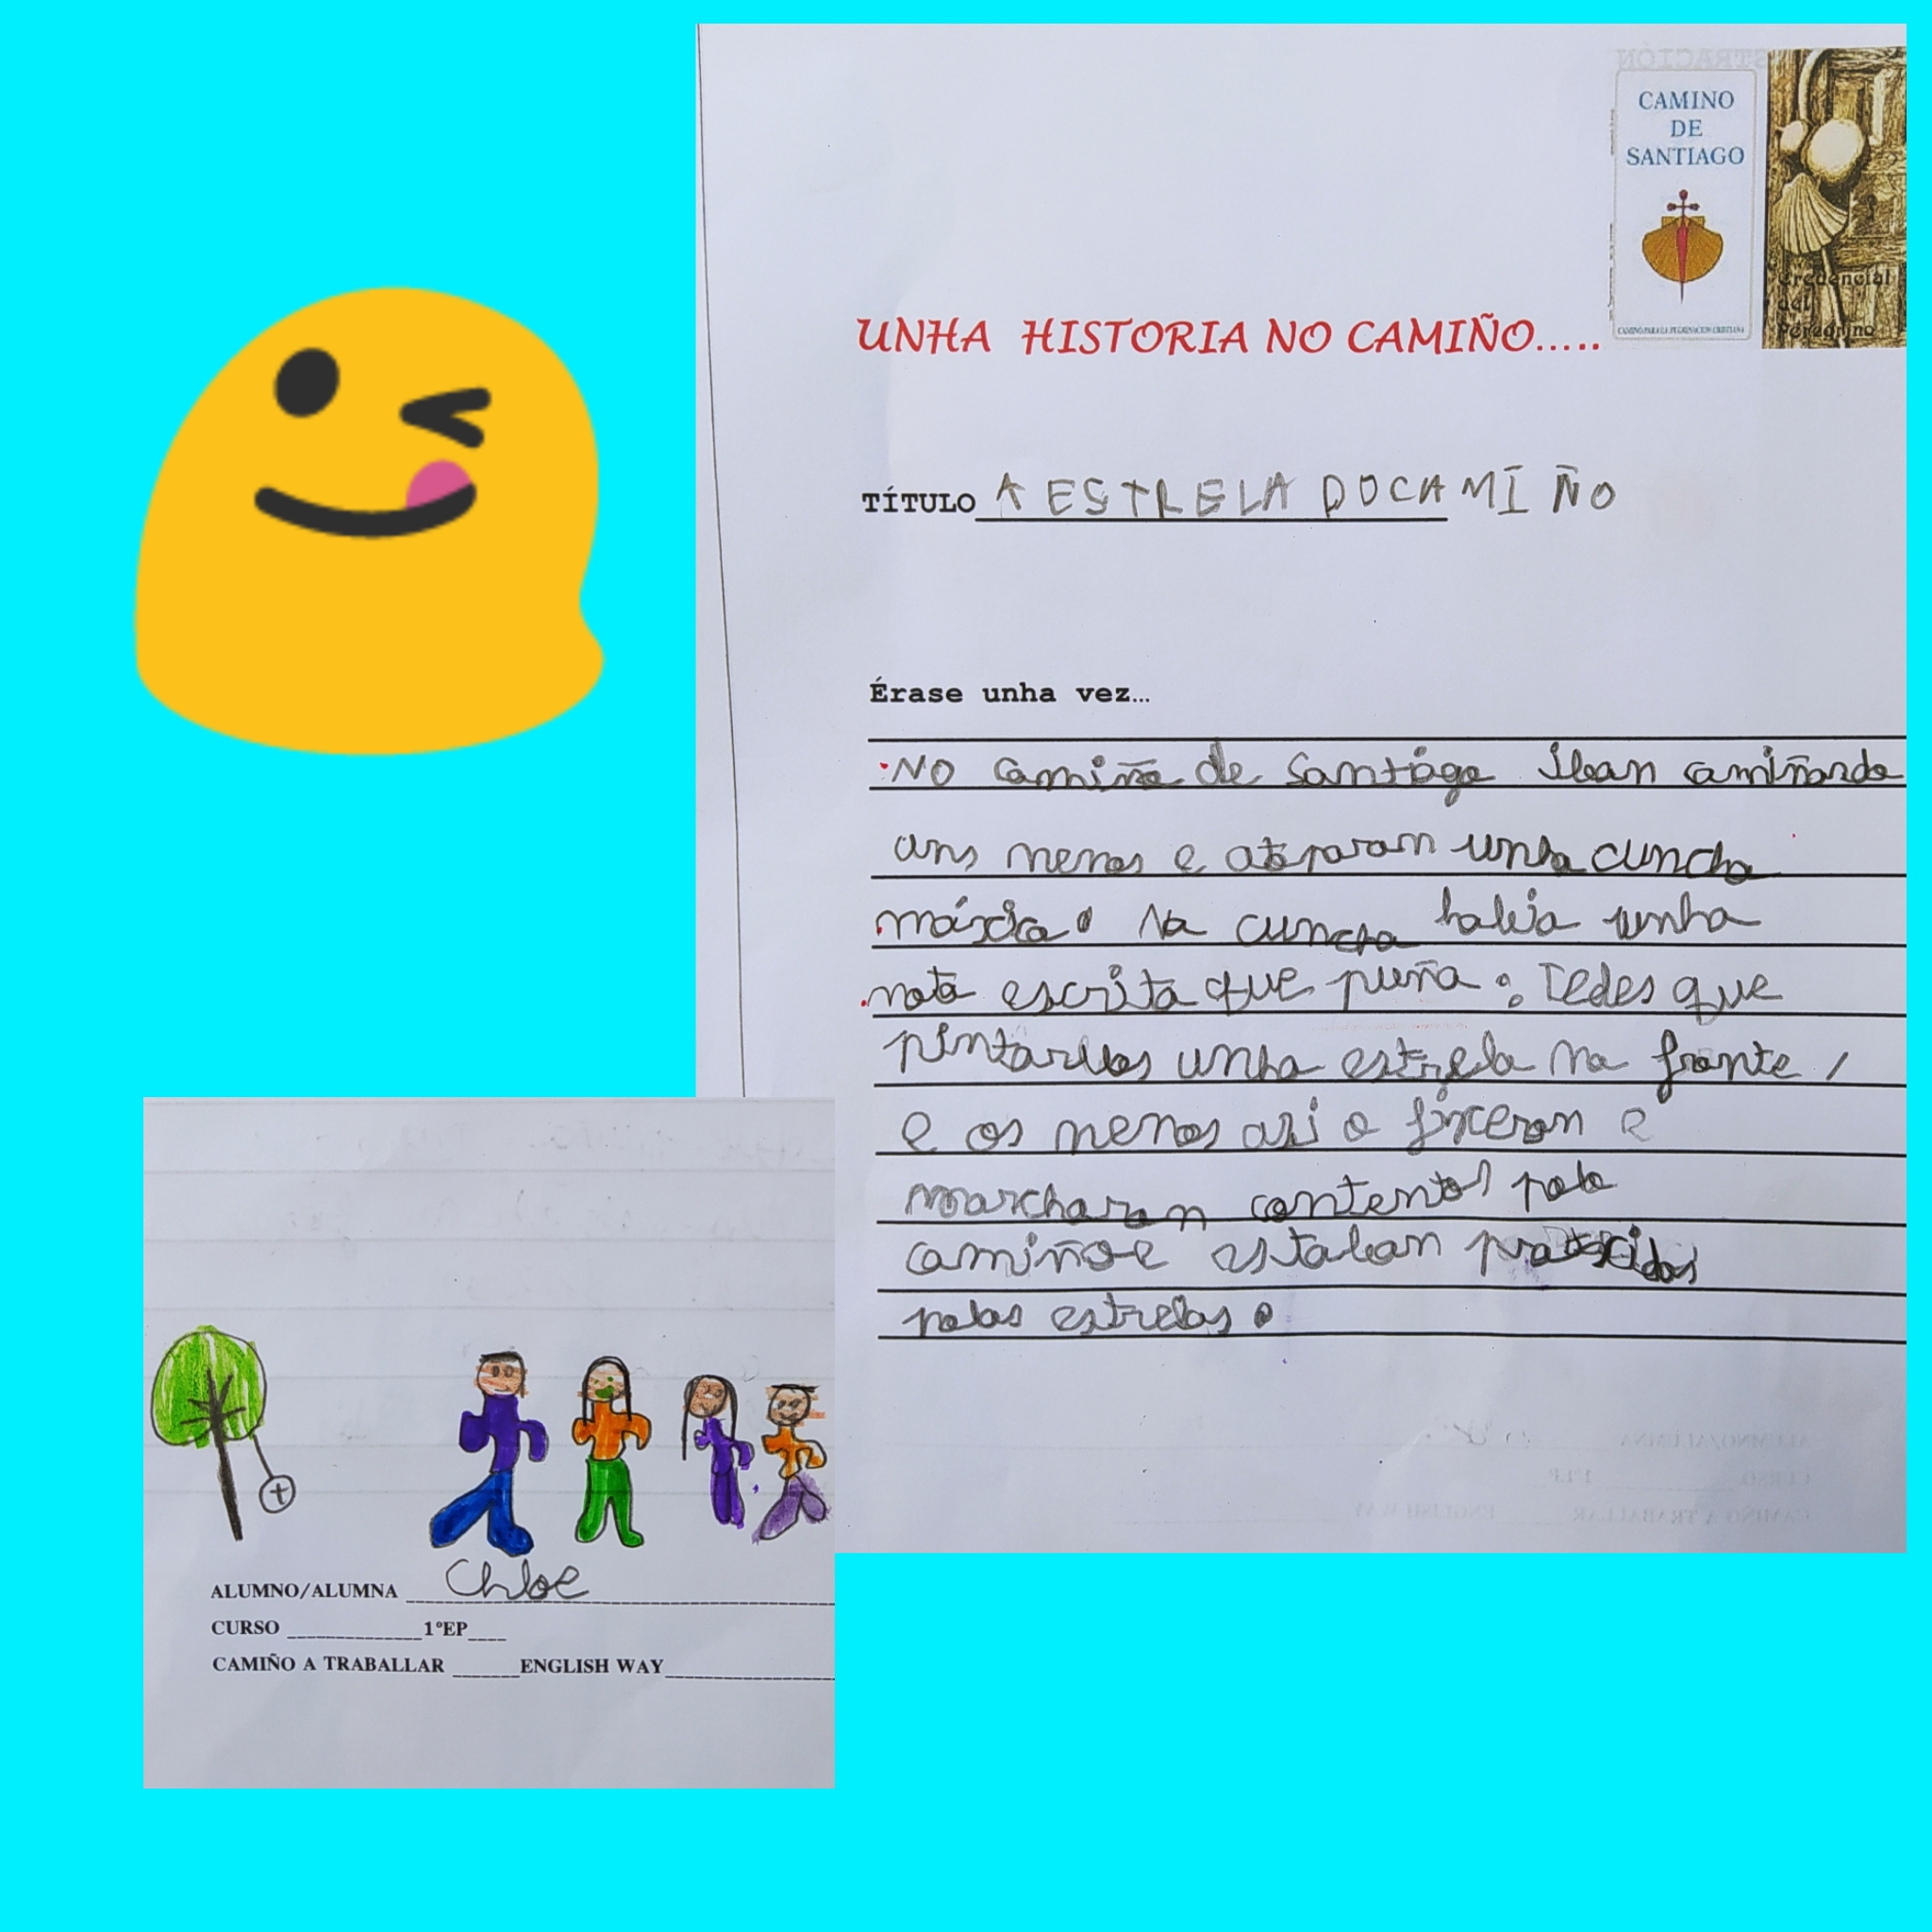 CAMINO
DE
SANTIAGO
Credencial
del
Peregrino
UNHA HISTORIA NO CAMIÑO.....
TÍTULO A ESTRELA DO CAMIÑO
Érase unha vez…
No camiño de Santiago iban camiñando
uns nenos e atoparon unha cuncha
máxica. Na cuncha había unha
nota escrita que puña: Tedes que
pintarvos unha estrela na fronte,
e os nenos asi o fixeron e
marcharon contentos polo
camiño e estaban protexidos
polas estrelas.
ALUMNO/ALUMNA Chloe
CURSO 1ºEP
CAMIÑO A TRABALLAR ENGLISH WAY